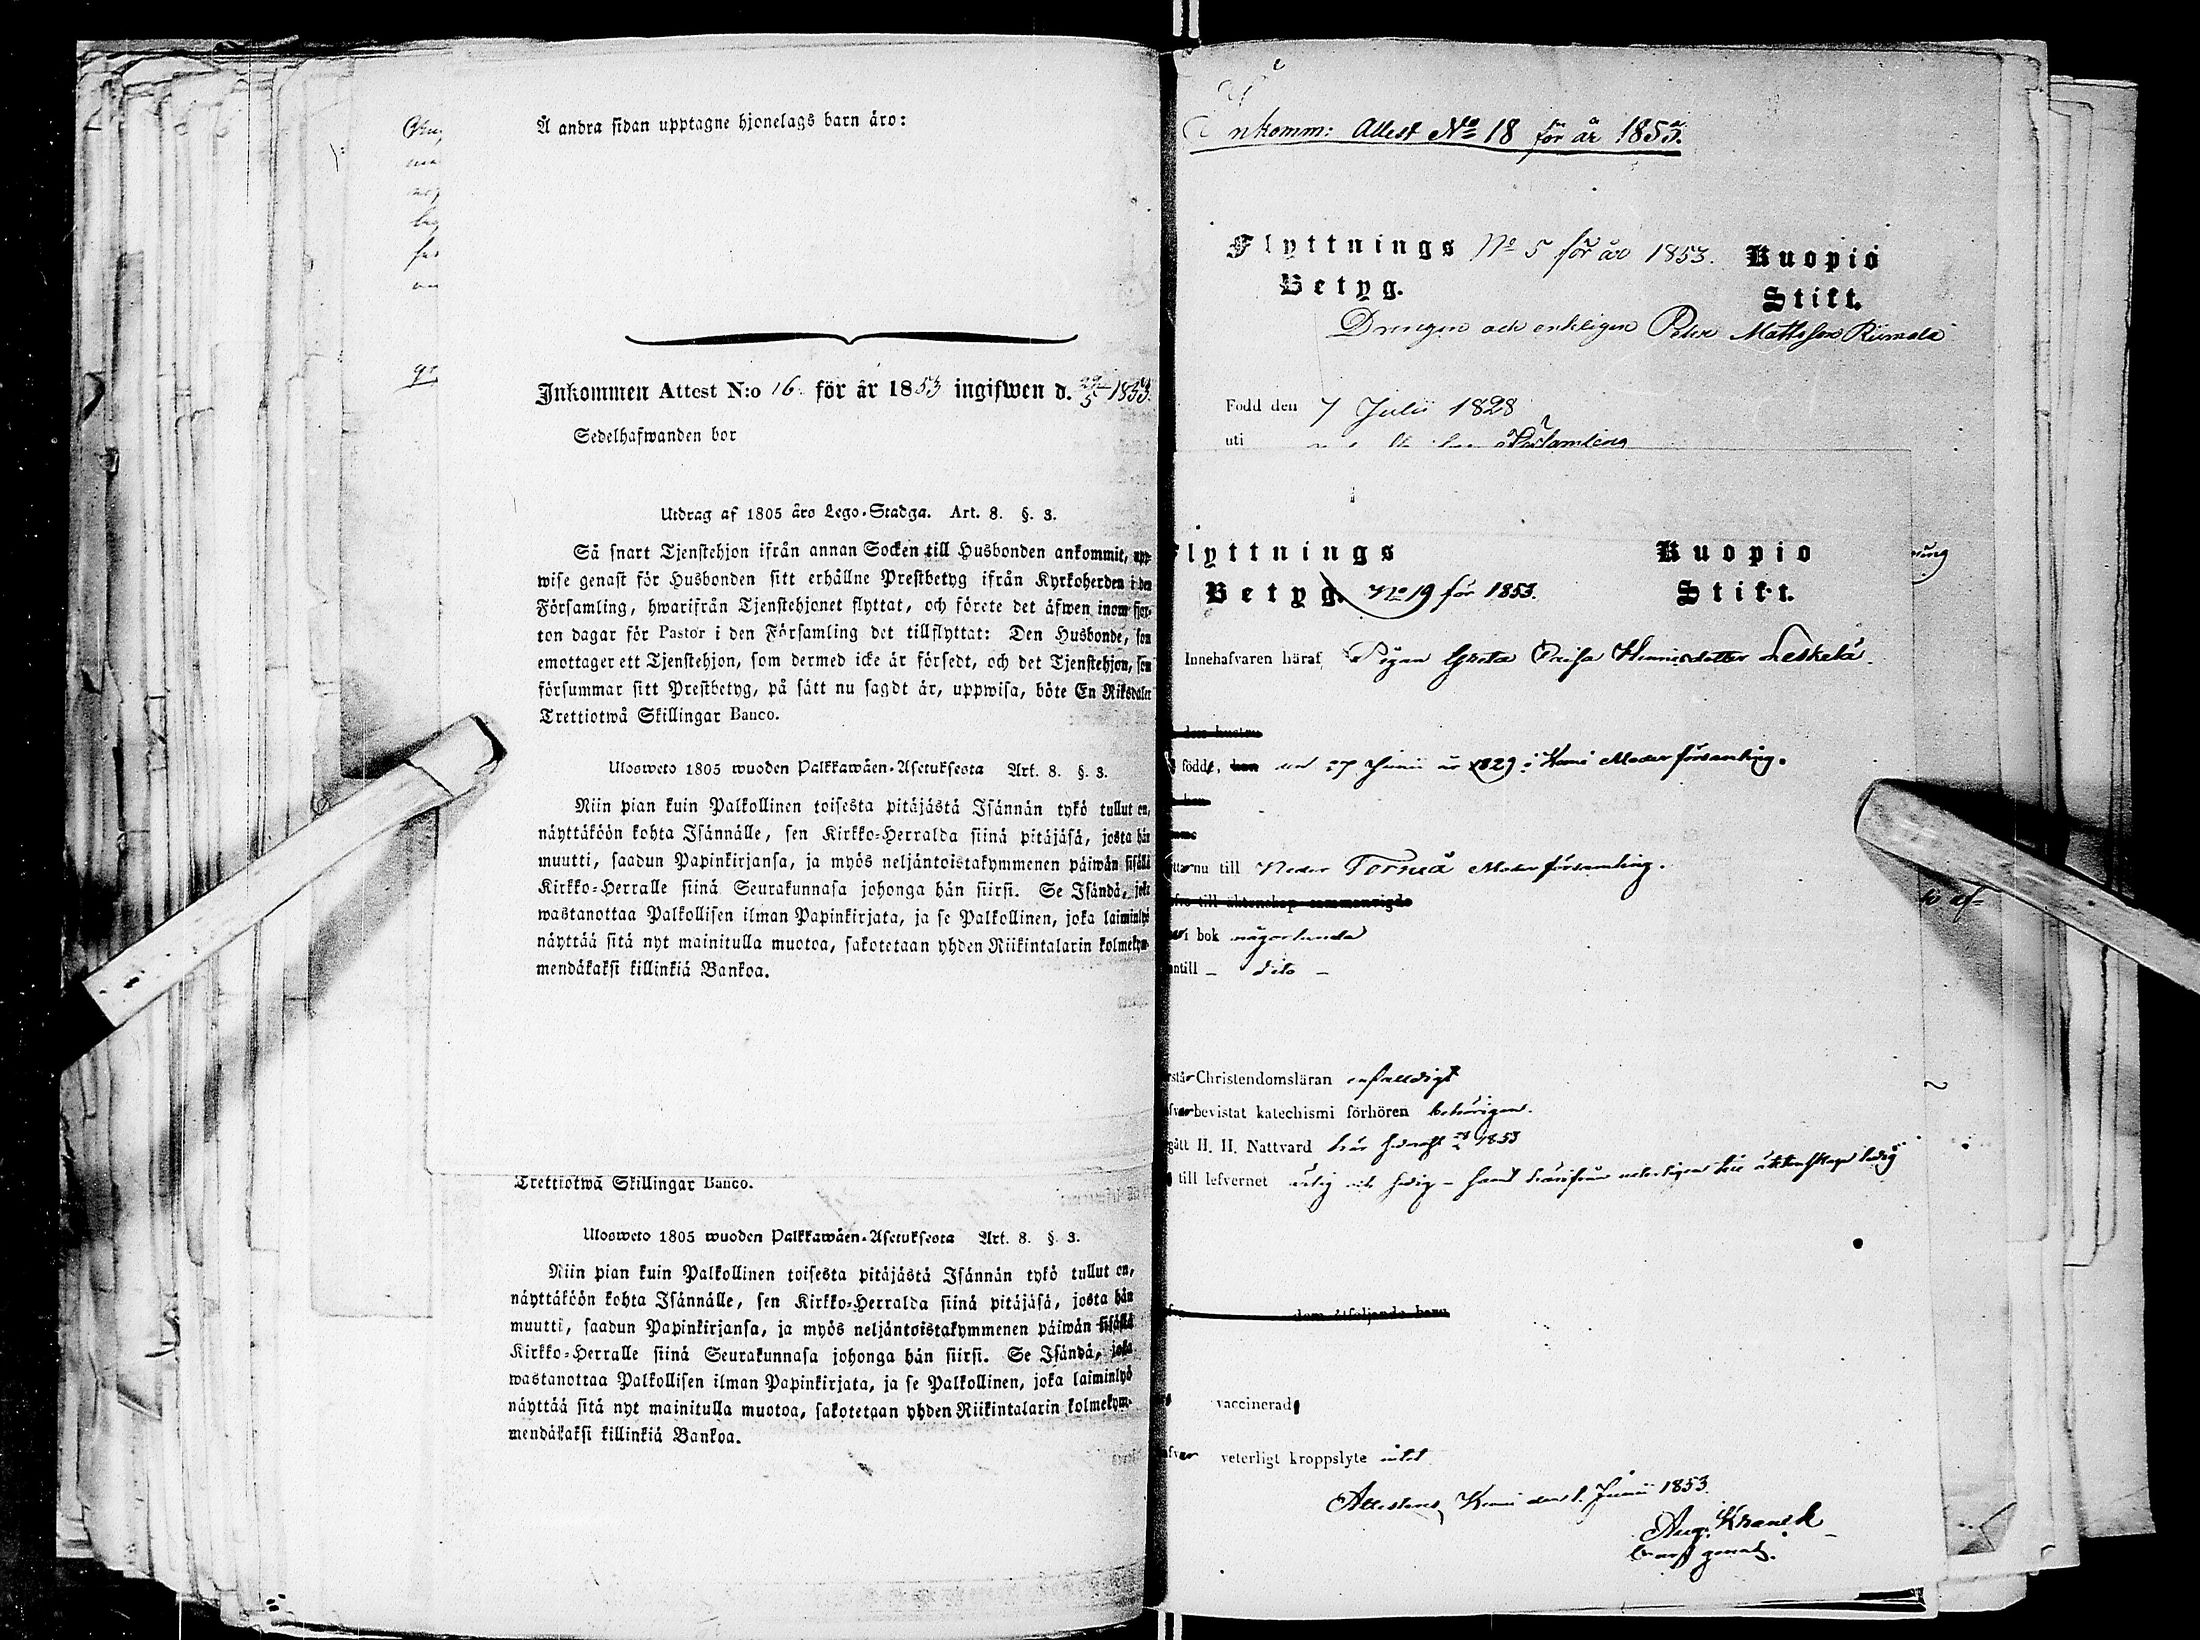 Å andra sidan upptagne hjonelags barn äro:
Inkommen Attest N:o 16. för år 1853 ingifwen d. 29/5 1853.
Sedelhafwanden bor
Utdrag af 1805 års Lego-Stadga. Art. 8. §. 3.
Så snart Tjenstehjon ifrån annan Socken till Husbonden ankommit, upp-
wise genast för Husbonden sitt erhållne Prestbetyg ifrån Kyrkoherden i den
Församling, hwarifrån Tjenstehjonet flyttat, och förete det äfwen inom fjor-
ton dagar för Pastor i den Församling det tillflyttat: Den Husbonde, som
emottager ett Tjenstehjon, som dermed icke är försedt, och det Tjenstehjon, som
försummar sitt Prestbetyg, på sätt nu sagdt är, uppwisa, böte En Riksdaler
Trettiotwå Skillingar Banco.
Ulosweto 1805 wuoden Palkkawäen-Asetuksesta Art. 8. §. 3.
Niin pian kuin Palkollinen toisesta pitäjästä Isännän tykö tullut on,
näyttäköön kohta Isännälle, sen Kirkko-Herralda siinä pitäjäsä, josta hän
muutti, saadun Papinkirjansa, ja myös neljäntoistakymmenen päiwän sisällä
Kirkko-Herralle siinä Seurakunnasa johonga hän siirsi. Se Isändä, joka
wastanottaa Palkollisen ilman Papinkirjata, ja se Palkollinen, joka laiminlyö
näyttää sitä nyt mainitulla muotoa, sakotetaan yhden Riikintalarin kolmekym-
mendäkaksi killinkiä Bankoa.
Trettiotwå Skillingar Banco.
Ulosweto 1805 wuoden Palkkawäen-Asetuksesta Art. 8. §. 3.
Niin pian kuin Palkollinen toisesta pitäjästä Isännän tykö tullut on,
näyttäköön kohta Isännälle, sen Kirkko-Herralda siinä pitäjäsä, josta hän
muutti, saadun Papinkirjansa, ja myös neljäntoistakymmenen päiwän sisällä
Kirkko-Herralle siinä Seurakunnasa johonga hän siirsi. Se Isändä, joka
wastanottaa Palkollisen ilman Papinkirjata, ja se Palkollinen, joka laiminlyö
näyttää sitä nyt mainitulla muotoa, sakotetaan yhden Riikintalarin kolmekym-
mendäkaksi killinkiä Bankoa.
Inkomm: Attest No 18 för år 1853.
Flyttnings No 5 för år 1853. Kuopio
Betyg. Stift.
Drengen och enkligen Petter Mattsson Riimala
Född den 7 Julii 1828
uti Församling
Flyttnings Kuopio
Betyg. No 19 för 1853. Stift.
Innehafvaren häraf Pigan Greta Caisa Henricsdotter Leskelä.
dess hustru
född, han den 27 Junii år 1829 i Kemi Moderförsamling.
hon
nu till Neder Torneå Moderförsamling.
till äktenskap sammanvigde
i bok någorlunda
antill – dito –
Christendomsläran enfaldigt
bevistat katechismi förhören behörigen.
gått H. H. Nattvard här sednast 1853
till lefvernet ärlig och fredig – samt härifrån veterligen till äktenskap ledig
dem åtföljande barn
vaccinerad
veterligt kroppslyte intet
Attesteras, Kemi den 1. Junii 1853.
Aug. Kranck